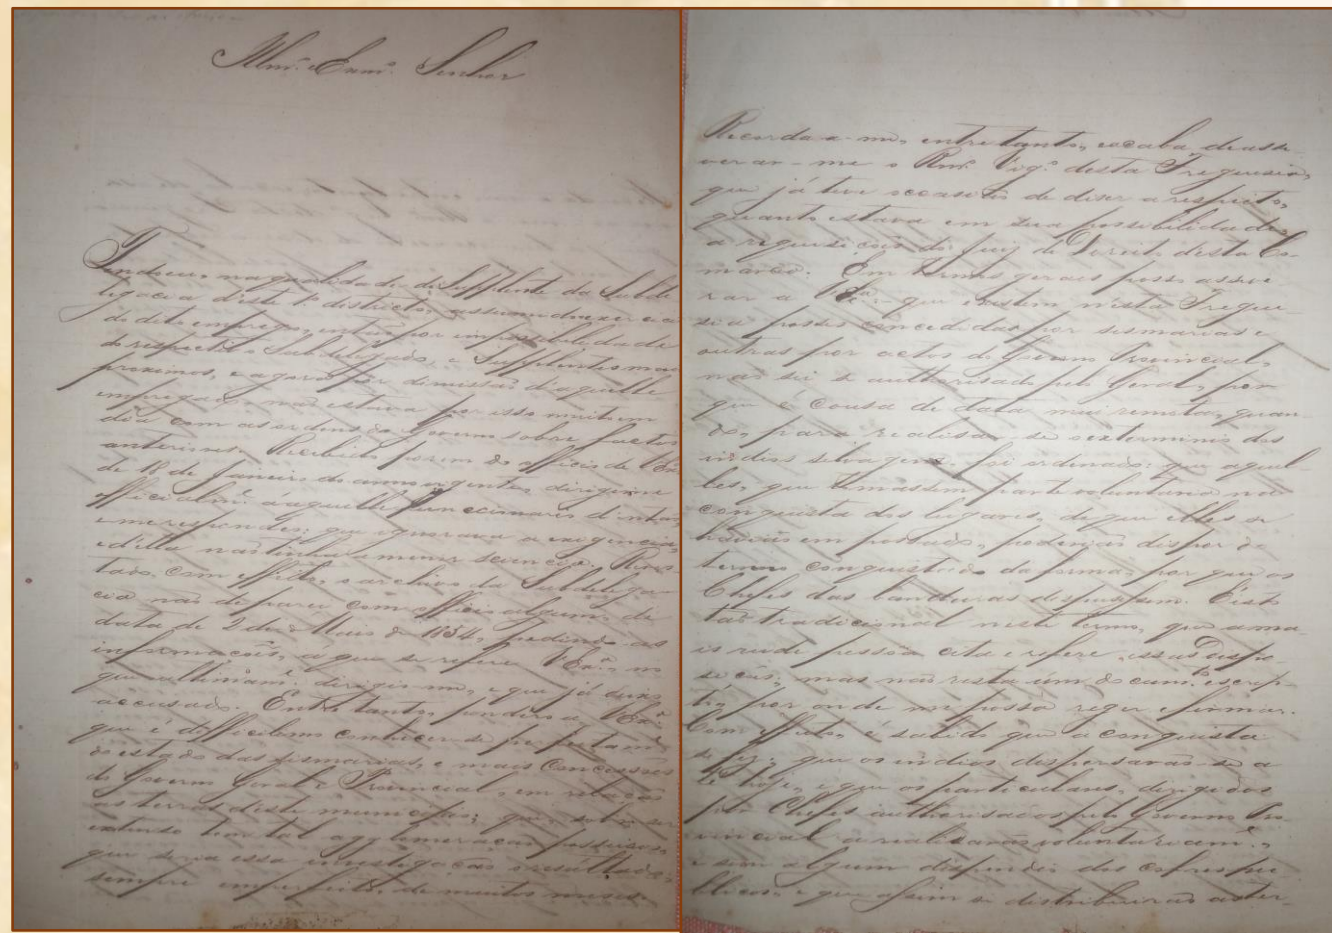 Illmo. e Exmo. Senhor
na qualidade de Supplente da Subde
legacia deste 1º districto, assumi o exercicio
do dito emprego, por impossibilidade
do respectivo Subdelegado, e Supplentes mais
proximos, e agora por dimissão d'aquelle
empregado não estava por isso muito em
dia com as ordens do Governo sobre factos
anteriores. Recebido porem o officio de V. Exa.
de 18 de Janeiro do anno vigente, dirigi-me
officialmte. áquelle funccionario
e me respondeo, que ignorava a exigencia
e d'ella não tinha a menor sciencia. Revis-
tado com effeito, o archivo da Subdelega-
cia não deparei com officio algum, de
data de 2 de Maio de 1854, pedindo as
informações, á que se refere V. Exa. no
que ultimamte. dirigio-me, e que já deixo
accusado. Entretanto, pondero a V. Exa.
que é difficilimo conhecer-se
do estado das sesmarias, e mais Concessões
do Governo Geral e Provincial, em relação
as terras deste municipio; que, sobre ser
extenso, tem tal agglomeração
que seria essa investigação
sempre imperfeito, de muitos mezes.
Recorda-me, entretanto, e acaba de asse-
verar-me o Rmo. Vigº. desta Freguesia,
que já teve occasião de dizer a respeito,
quanto estava em sua possibilidade,
a requisição do Juiz de Direito desta Co-
marca. Em termos geraes posso asseve-
rar a V. Exa. que existem nesta Fregue-
sia posses concedidas por sesmarias e
outras por actos do Governo Provincial,
não sei se authorisado pelo Geral, por
que é cousa de data mui remota, quan-
do, para realisar-se o exterminio dos
indios selvagens, foi ordenado: que aquel-
les, que tomassem parte voluntaria na
conquista dos lugares, de que elles se
havião empossado, poderião dispor do
terreno conquistado da forma, por que os
Chefes das bandeiras dispusessem. É isto
tão tradicional neste termo, que a ma-
is rude pessoa cita e refere essas dispo-
sições, mas não resta um documto. escrip-
to, por onde me possa reger e firmar.
Com effeito, é sabido que a conquista
se fez, que os indios dispersarão-se a
té hoje, e que os particulares, dirigidos
por Chefes authorisados pelo Governo Pro
vincial a realisarão voluntariamte.,
e sem algum dispendio dos cofres pu-
blicos, e que assim se distribuirão as ter-